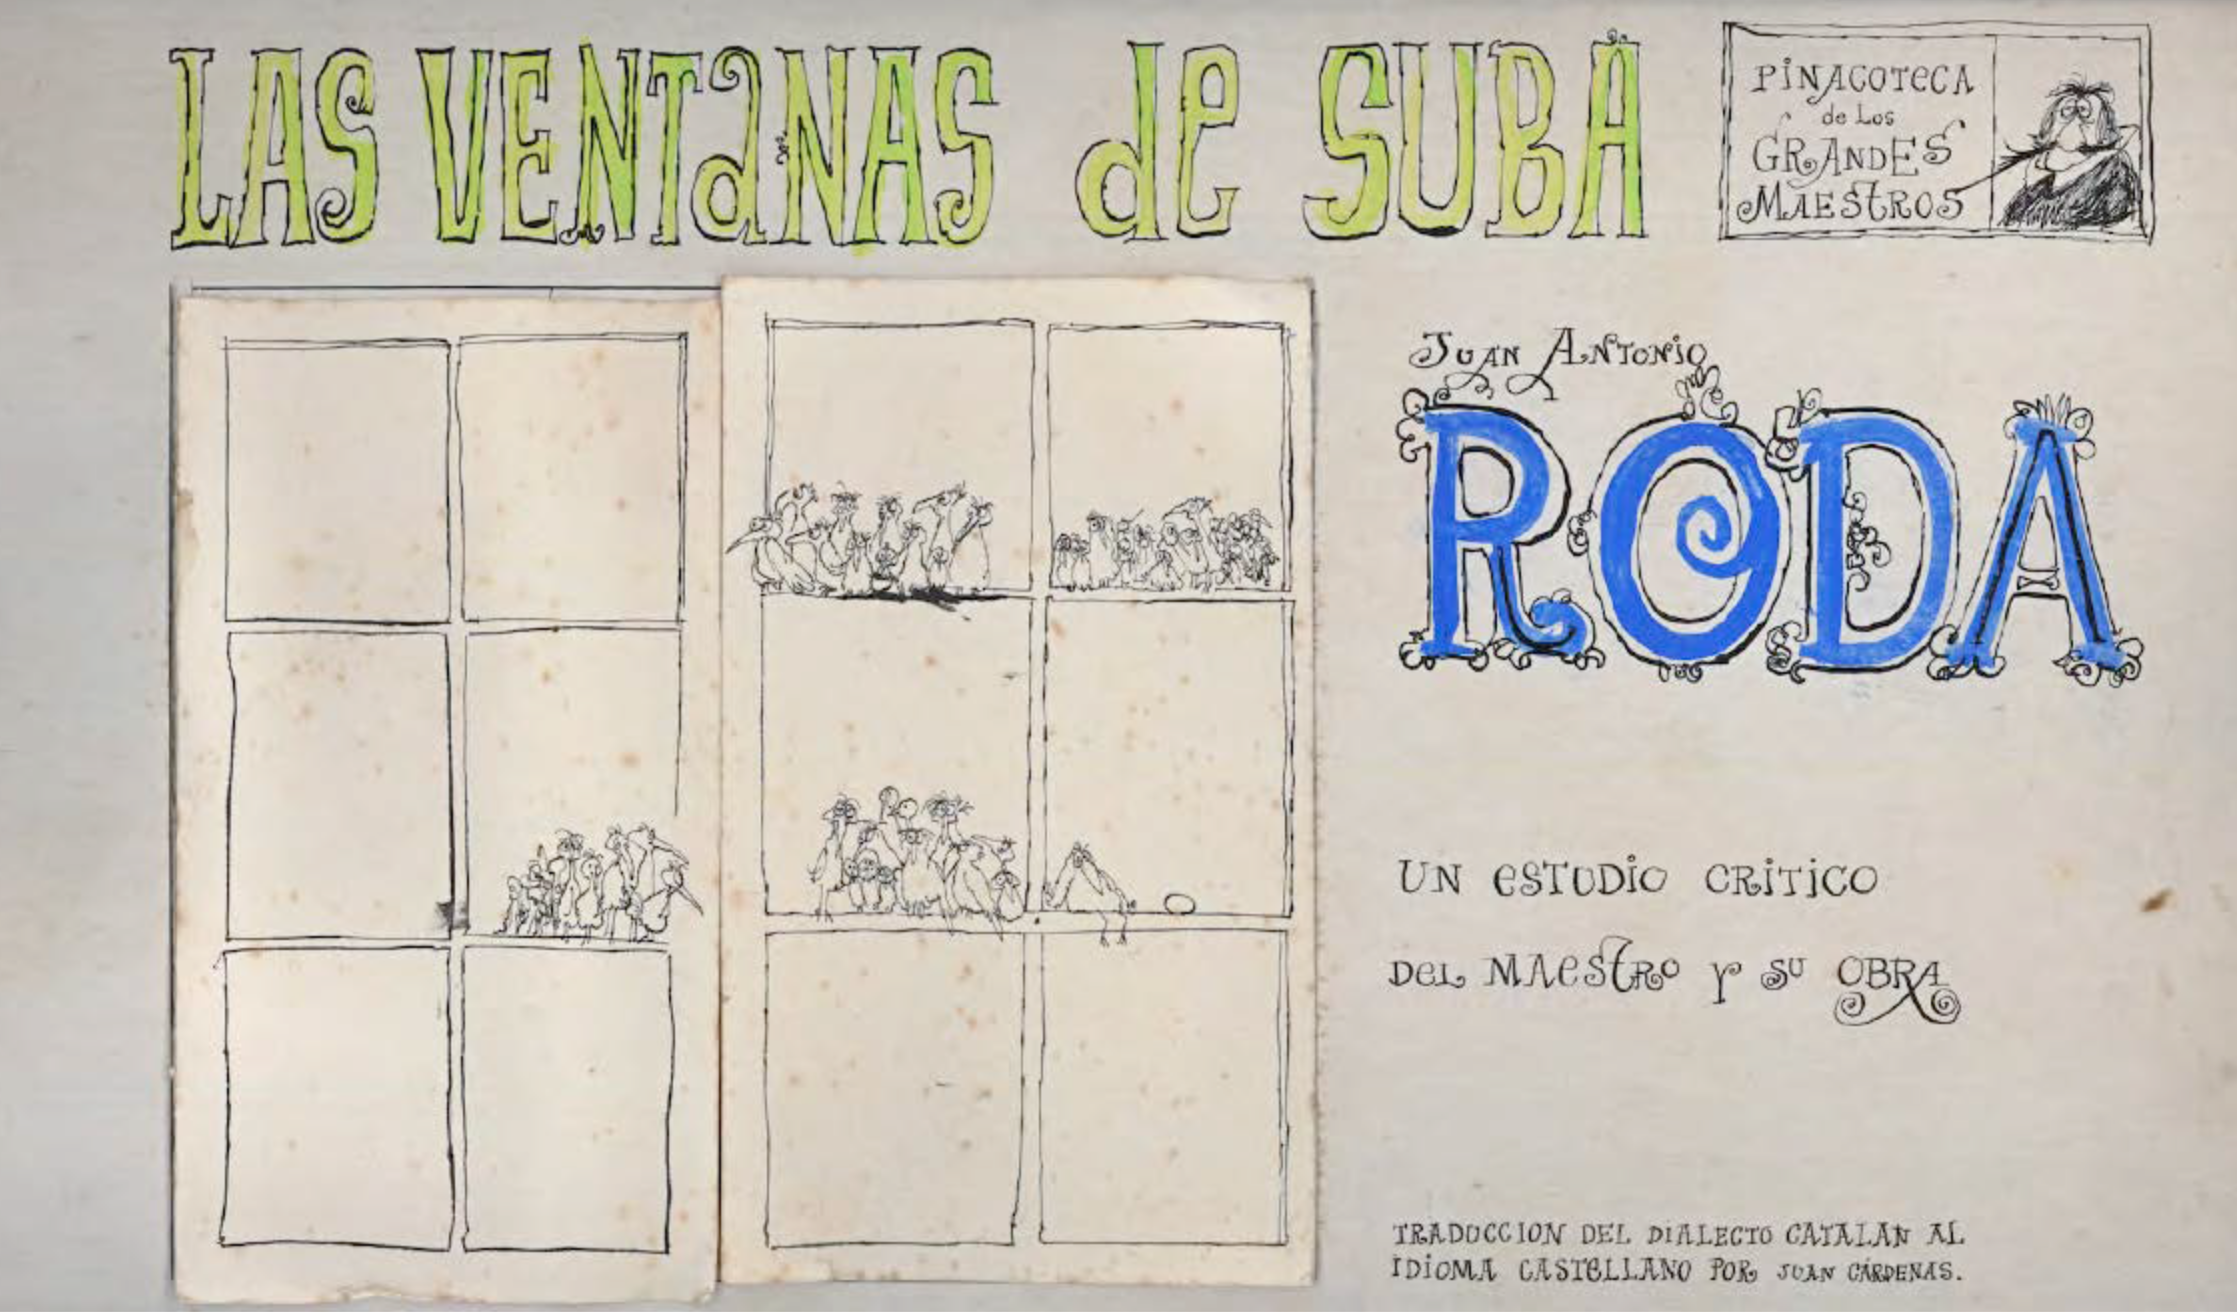 LAS VENTANAS de SUBA
PINACOTECA
de Los
GRANDES
MAESTROS
JUAN ANTONIO
RODA
UN ESTUDIO CRITICO
DEL MAESTRO Y SU OBRA
TRADUCCION DEL DIALECTO CATALAN AL
IDIOMA CASTELLANO POR JUAN CÁRDENAS.